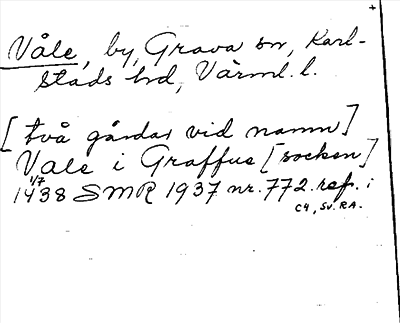 Våle, by, Grava sn, Karl-
stads hd, Värml. l.
[två gårdar vid namn]
Vale i Graffue [socken]
1/7
1438 SMR 1937 nr. 772. ref. i
C4, Sv. RA.